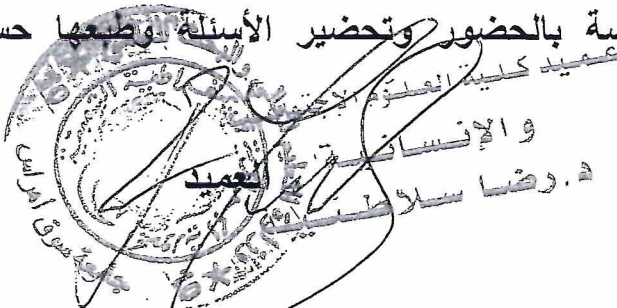 سة بالحضور وتحضير الأسئلة وطبعها حس
عميد كلية العلوم الاجتماعية
و الإنسانية
العميد
د. رضا سلاطنية
جامعة سوق أهراس